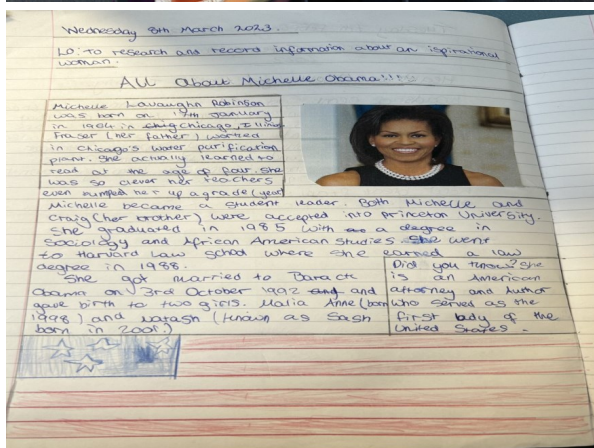 Wednesday 8th March 2023.
LO: To research and record information about an ispirational
woman.
All about Michelle Obama!!!
Michelle Lavaughn Robinson
was born on 17th January
in 1964 in Chicago, Illinois
Fraser (her father) worked
in Chicago's water purification
plant. She actually learned to
read at the age of four. She
was so clever her teachers
even bumped her up a grade (year)
Michelle became a student leader. Both Michelle and
Craig (her brother) were accepted into princeton University.
She graduated in 1985 with a degree in
Sociology and African American Studies. She went
to Harvard Law school where she earned a law
degree in 1988.
She got married to Barack
Obama on 3rd October 1992 and
gave birth to two girls. Malia Anne (born
1998) and Natash (known as Sash
born in 2001.)
Did you know? She
is an American
attorney and Author
who served as the
first lady of the
United States.